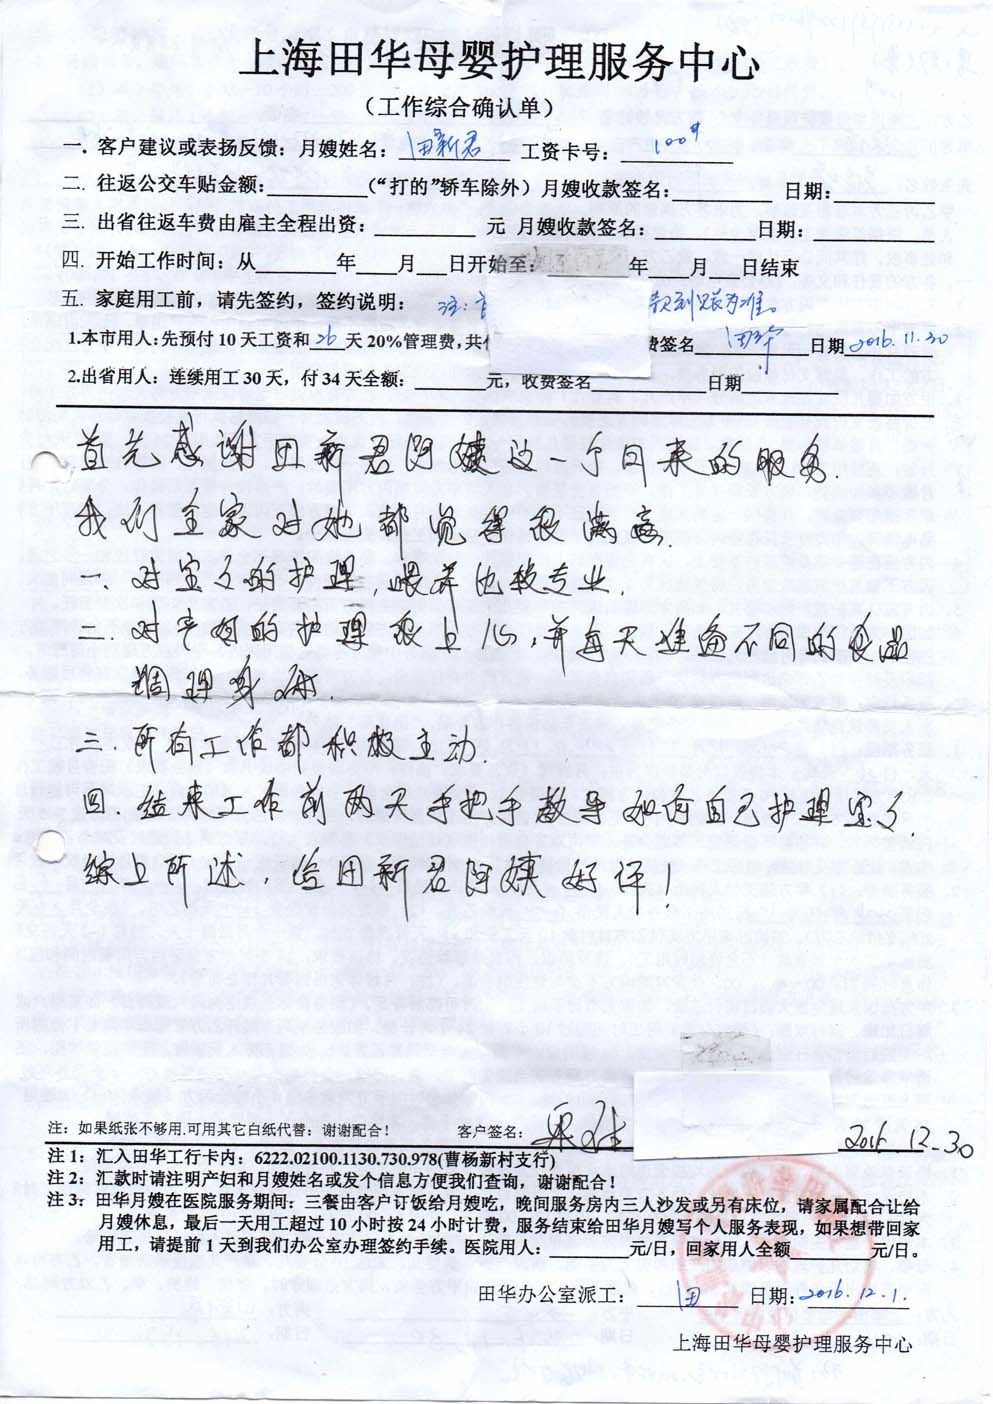 上海田华母婴护理服务中心
（工作综合确认单）
一. 客户建议或表扬反馈：月嫂姓名：田新君 工资卡号：100#
二. 往返公交车贴金额： （“打的”轿车除外）月嫂收款签名： 日期：
三. 出省往返车费由雇主全程出资： 元 月嫂收款签名： 日期：
四. 开始工作时间：从 年 月 日开始至： 年 月 日结束
五. 家庭用工前，请先签约，签约说明： 注： 款到账为准。
1.本市用人：先预付 10 天工资和 26 天 20%管理费，共 费签名 田华 日期 2016.11.30
2.出省用人：连续用工 30 天，付 34 天全额： 元，收费签名 日期
首先感谢田新君阿姨这一个月来的服务.
我们全家对她都觉得很满意.
一. 对宝宝的护理，喂养比较专业.
二. 对产妇的护理很上心，并每天准备不同的食品
调理身体.
三. 所有工作都积极主动.
四. 结束工作前两天手把手教导如何自己护理宝宝.
综上所述，给田新君阿姨好评.
注：如果纸张不够用.可用其它白纸代替：谢谢配合！ 客户签名： 2016.12.30
注 1：汇入田华工行卡内：6222.02100.1130.730.978(曹杨新村支行)
注 2：汇款时请注明产妇和月嫂姓名或发个信息方便我们查询，谢谢配合！
注 3：田华月嫂在医院服务期间：三餐由客户订饭给月嫂吃，晚间服务房内三人沙发或另有床位，请家属配合让给
月嫂休息，最后一天用工超过 10 小时按 24 小时计费，服务结束给田华月嫂写个人服务表现，如果想带回家
用工，请提前 1 天到我们办公室办理签约手续。医院用人： 元/日，回家用人全额 元/日。
田华办公室派工： 田 日期：2016.12.1.
上海田华母婴护理服务中心